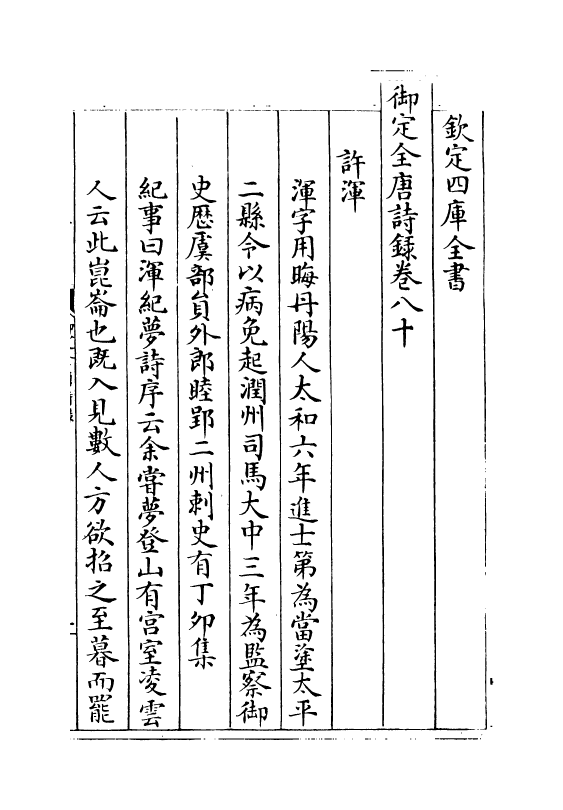 欽定四庫全書
御定全唐詩録卷八十
許渾
渾字用晦丹陽人太和六年進士第為當塗太平
二縣令以病免起潤州司馬大中三年為監察御
史歴虞部員外郎睦郢二州刺史有丁卯集
紀事曰渾紀夢詩序云余甞夢登山有宫室凌雲
人云此崑崙也既入見數人方欲招之至暮而罷